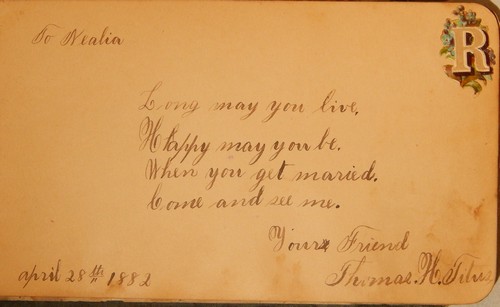 To Nealia
R
Long may you live,
Happy may you be.
When you get maried.
Come and see me.
Yours Friend
Thomas. H.
april 28th 1882